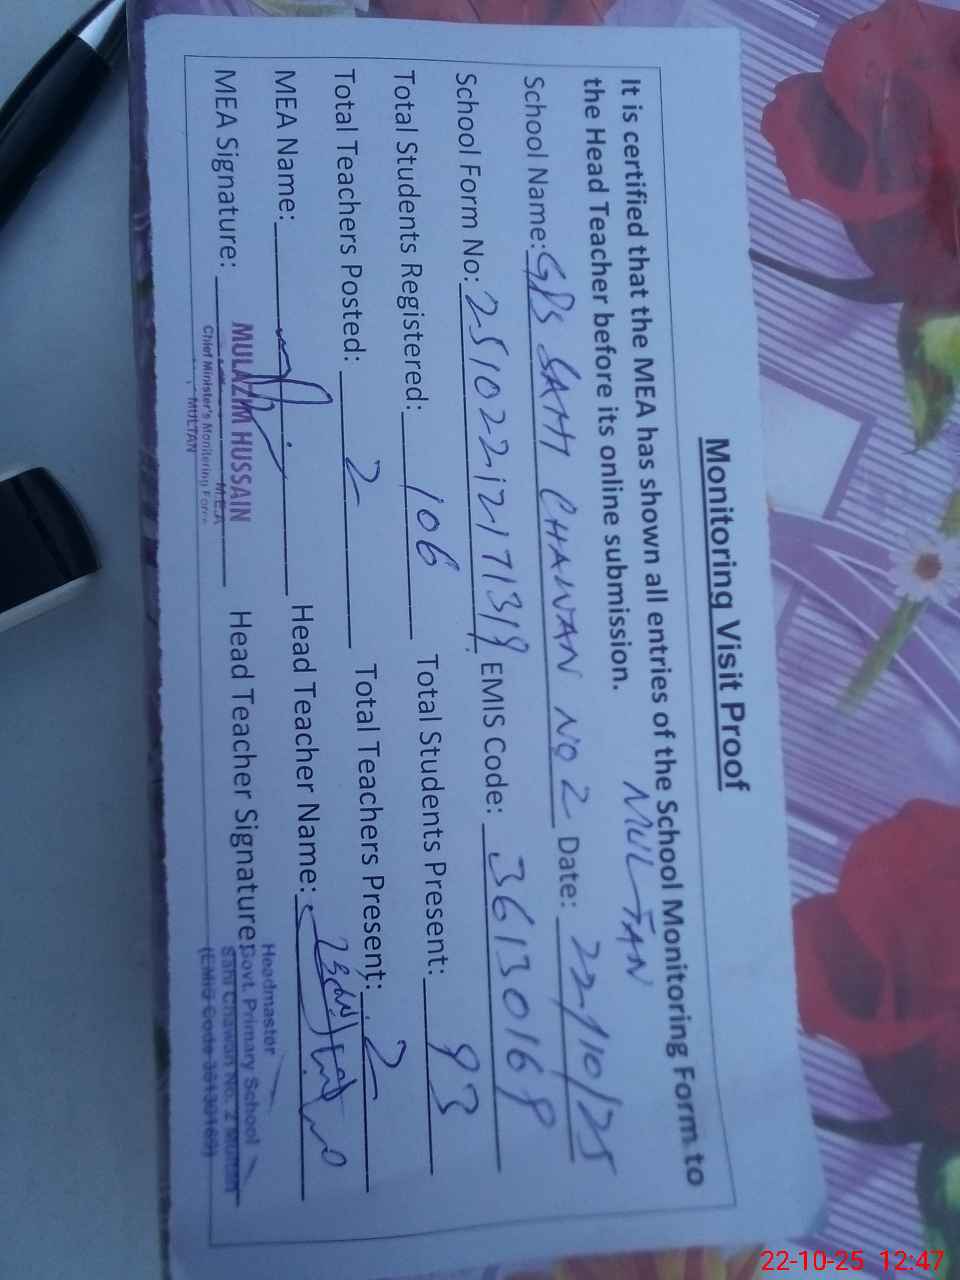 Monitoring Visit Proof
It is certified that the MEA has shown all entries of the School Monitoring Form to
the Head Teacher before its online submission. MULTAN
School Name: GPS SAMI CHAWAN NO 2 Date: 22/10/25
School Form No: 25102212171319 EMIS Code: 36130169
Total Students Registered: 106 Total Students Present: 93
Total Teachers Posted: 2 Total Teachers Present: 2
MEA Name: Head Teacher Name:
MEA Signature: Head Teacher Signature:
MULAZIM HUSSAIN
M.E.A
Chief Minister's Monitoring Force
MULTAN
Headmaster
Govt. Primary School
Sami Chawan No. 2 Multan
(EMIS Code 36130169)
22-10-25 12:47